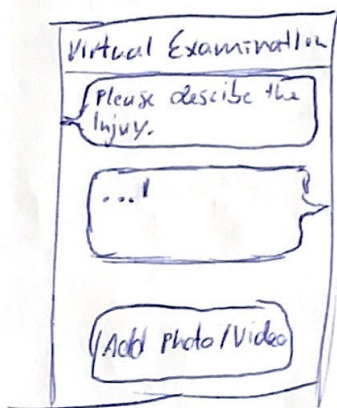 Virtual Examination
Please descibe the
Injuy.
...
Add Photo/Video